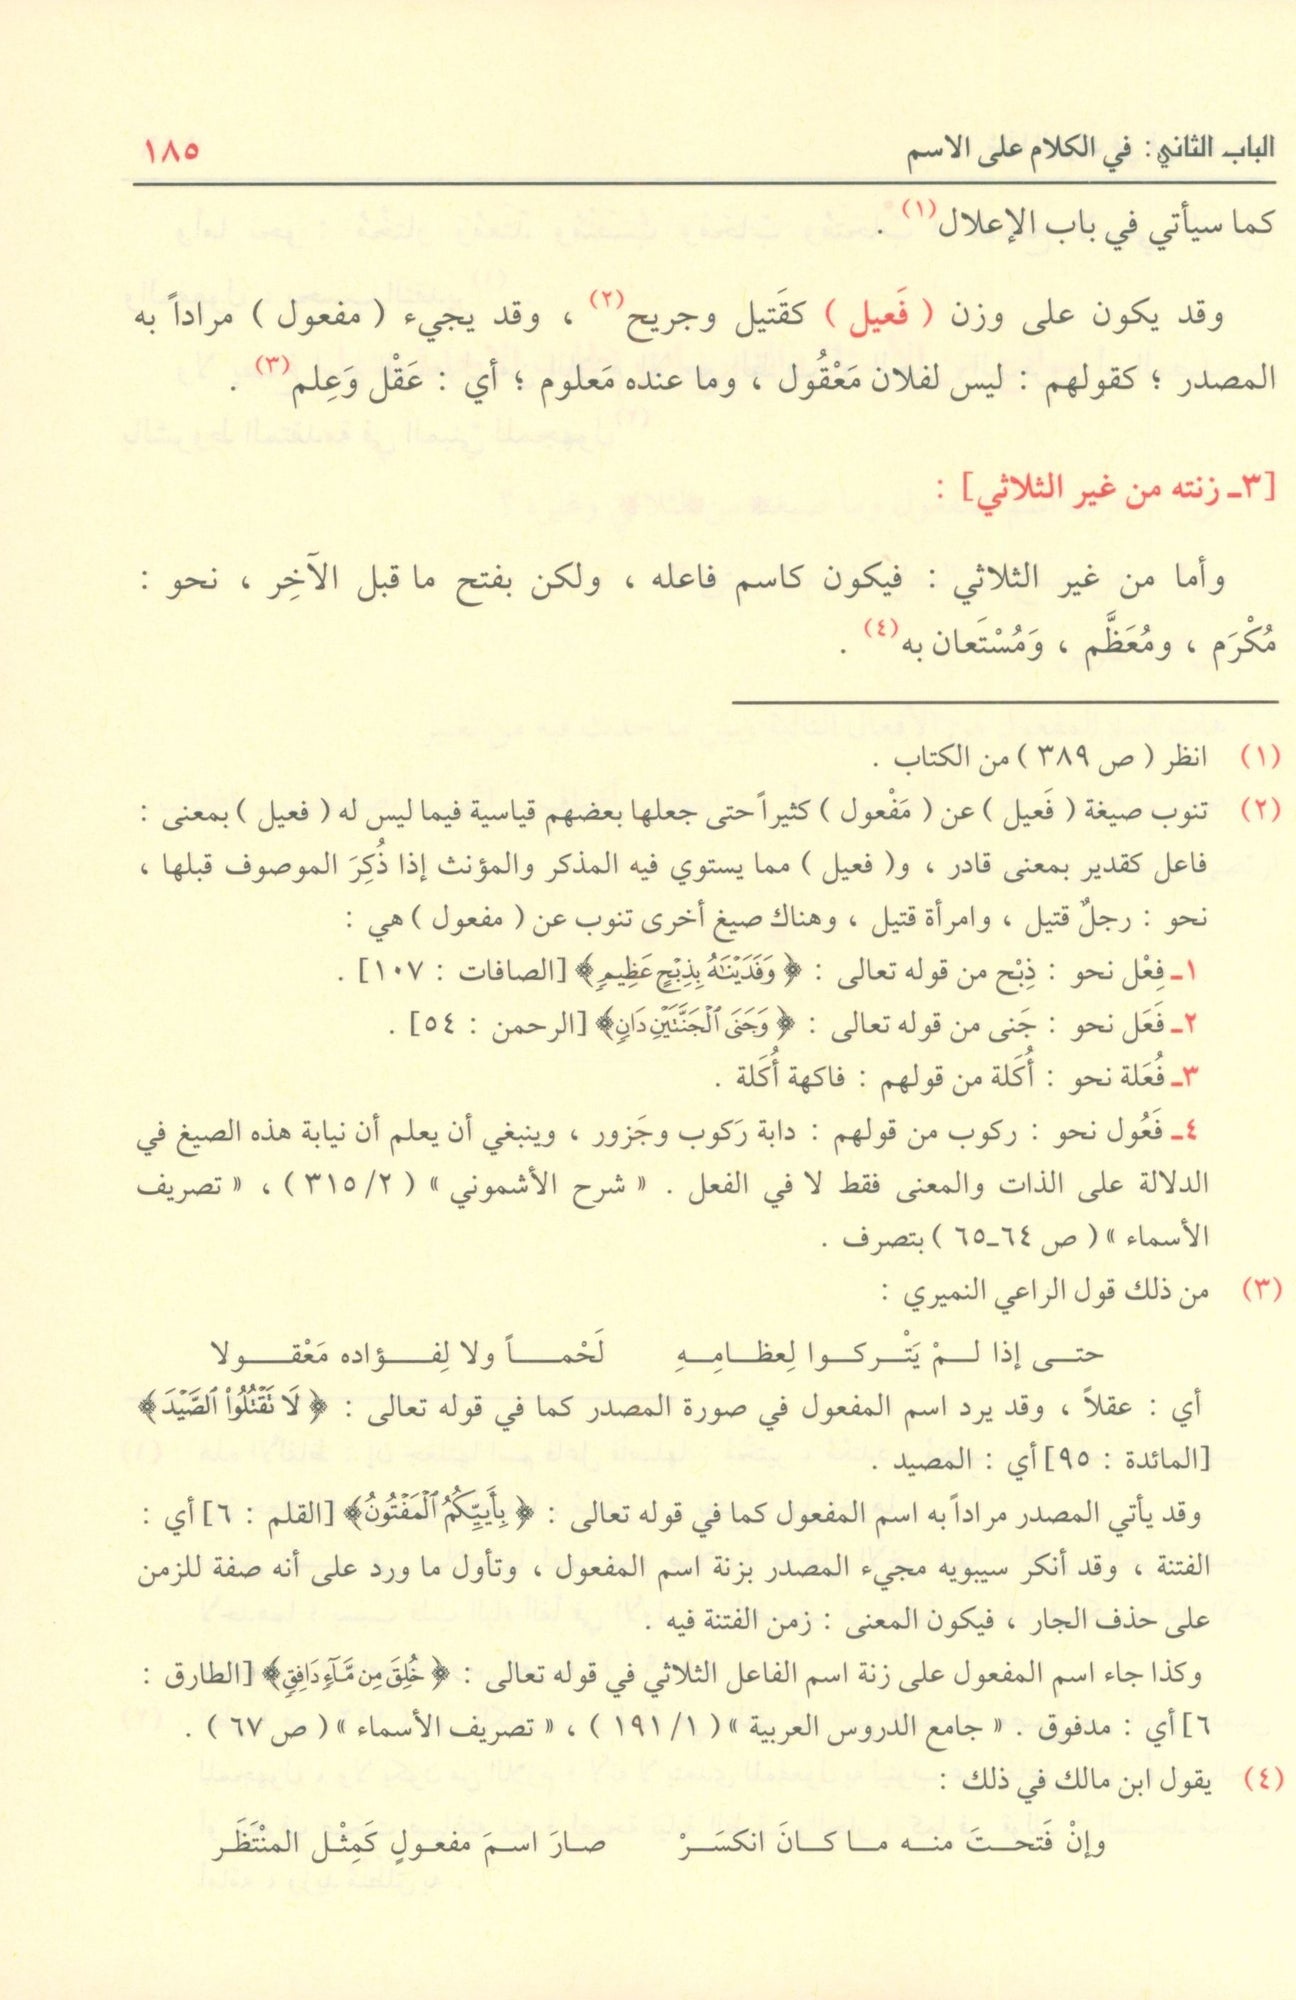 الباب الثاني: في الكلام على الاسم ١٨٥
كما سيأتي في باب الإعلال(١) .
وقد يكون على وزن ( فَعيل ) كقَتيل وجريح(٢) ، وقد يجيء ( مفعول ) مراداً به
المصدر ؛ كقولهم : ليس لفلان مَعْقُول ، وما عنده مَعلوم ؛ أي : عَقْل وَعِلم(٣) .
[٣ـ زنته من غير الثلاثي] :
وأما من غير الثلاثي : فيكون كاسم فاعله ، ولكن بفتح ما قبل الآخِر ، نحو :
مُكْرَم ، ومُعَظَّم ، وَمُسْتَعان به(٤) .
(١) انظر ( ص ٣٨٩ ) من الكتاب .
(٢) تنوب صيغة ( فَعيل ) عن ( مَفْعول ) كثيراً حتى جعلها بعضهم قياسية فيما ليس له ( فعيل ) بمعنى :
فاعل كقدير بمعنى قادر ، و( فعيل ) مما يستوي فيه المذكر والمؤنث إذا ذُكِرَ الموصوف قبلها ،
نحو : رجلٌ قتيل ، وامرأة قتيل ، وهناك صيغ أخرى تنوب عن ( مفعول ) هي :
١ـ فِعْل نحو : ذِبْح من قوله تعالى : ﴿ وَفَدَيْنَٰهُ بِذِبْحٍ عَظِيمٍ﴾ [الصافات : ١٠٧] .
٢ـ فَعَل نحو : جَنى من قوله تعالى : ﴿ وَجَنَى ٱلْجَنَّتَيْنِ دَانٍ﴾ [الرحمن : ٥٤] .
٣ـ فُعَلة نحو : أُكَلة من قولهم : فاكهة أُكَلة .
٤ـ فَعُول نحو : ركوب من قولهم : دابة رَكوب وجَزور ، وينبغي أن يعلم أن نيابة هذه الصيغ في
الدلالة على الذات والمعنى فقط لا في الفعل . « شرح الأشموني » ( ٣١٥/٢ ) ، « تصريف
الأسماء » ( ص ٦٤ـ٦٥ ) بتصرف .
(٣) من ذلك قول الراعي النميري :
حتـى إذا لـمْ يَتْـركـوا لِعظـامِـهِ لَحْمـاً ولا لِفـؤاده مَعْقـولا
أي : عقلاً ، وقد يرد اسم المفعول في صورة المصدر كما في قوله تعالى : ﴿ لَا تَقْتُلُوا۟ ٱلصَّيْدَ﴾
[المائدة : ٩٥] أي : المصيد .
وقد يأتي المصدر مراداً به اسم المفعول كما في قوله تعالى : ﴿ بِأَييِّكُمُ ٱلْمَفْتُونُ﴾ [القلم : ٦] أي :
الفتنة ، وقد أنكر سيبويه مجيء المصدر بزنة اسم المفعول ، وتأول ما ورد على أنه صفة للزمن
على حذف الجار ، فيكون المعنى : زمن الفتنة فيه .
وكذا جاء اسم المفعول على زنة اسم الفاعل الثلاثي في قوله تعالى : ﴿ خُلِقَ مِن مَّآءٍ دَافِقٍ﴾ [الطارق :
٦] أي : مدفوق . « جامع الدروس العربية » ( ١٩١/١ ) ، « تصريف الأسماء » ( ص ٦٧ ) .
(٤) يقول ابن مالك في ذلك :
وإنْ فَتحـتَ منـه مـا كـانَ انكسَـرْ صـارَ اسـمَ مفعـولٍ كَمِثْـل المنْتَظَـر